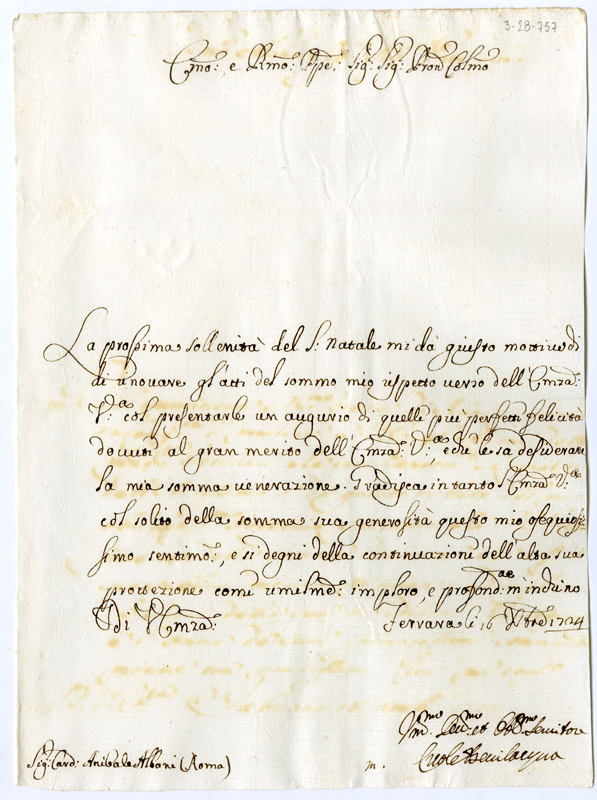 3-28-757
Emo: e Rmo: Ppe: Sig: Sig: Pron Colmo
La prossima sollenità del S: Natale mi dà giusto mottivo di
di rinovare gl'atti del sommo mio rispetto verso dell'Emza:
V:a col presentarle un augurio di quelle più perfetti felicità
dovuti al gran merito dell'Emza: V:a, e che le sà desiderare
la mia somma venerazione. Gradisca intanto l'Emza V:a
col solito della somma sua generosità questo mio ossequios-
simo sentimo:, e si degni della continuazione dell'alta sua
prottezione come umilme: imploro, e profond:ae m'inchino
Di V Emza: Ferrara li 16 Xbre 1724
Servitore
Ercole Bevilacqua
Sig: Card: Anibale Albani (Roma) m.